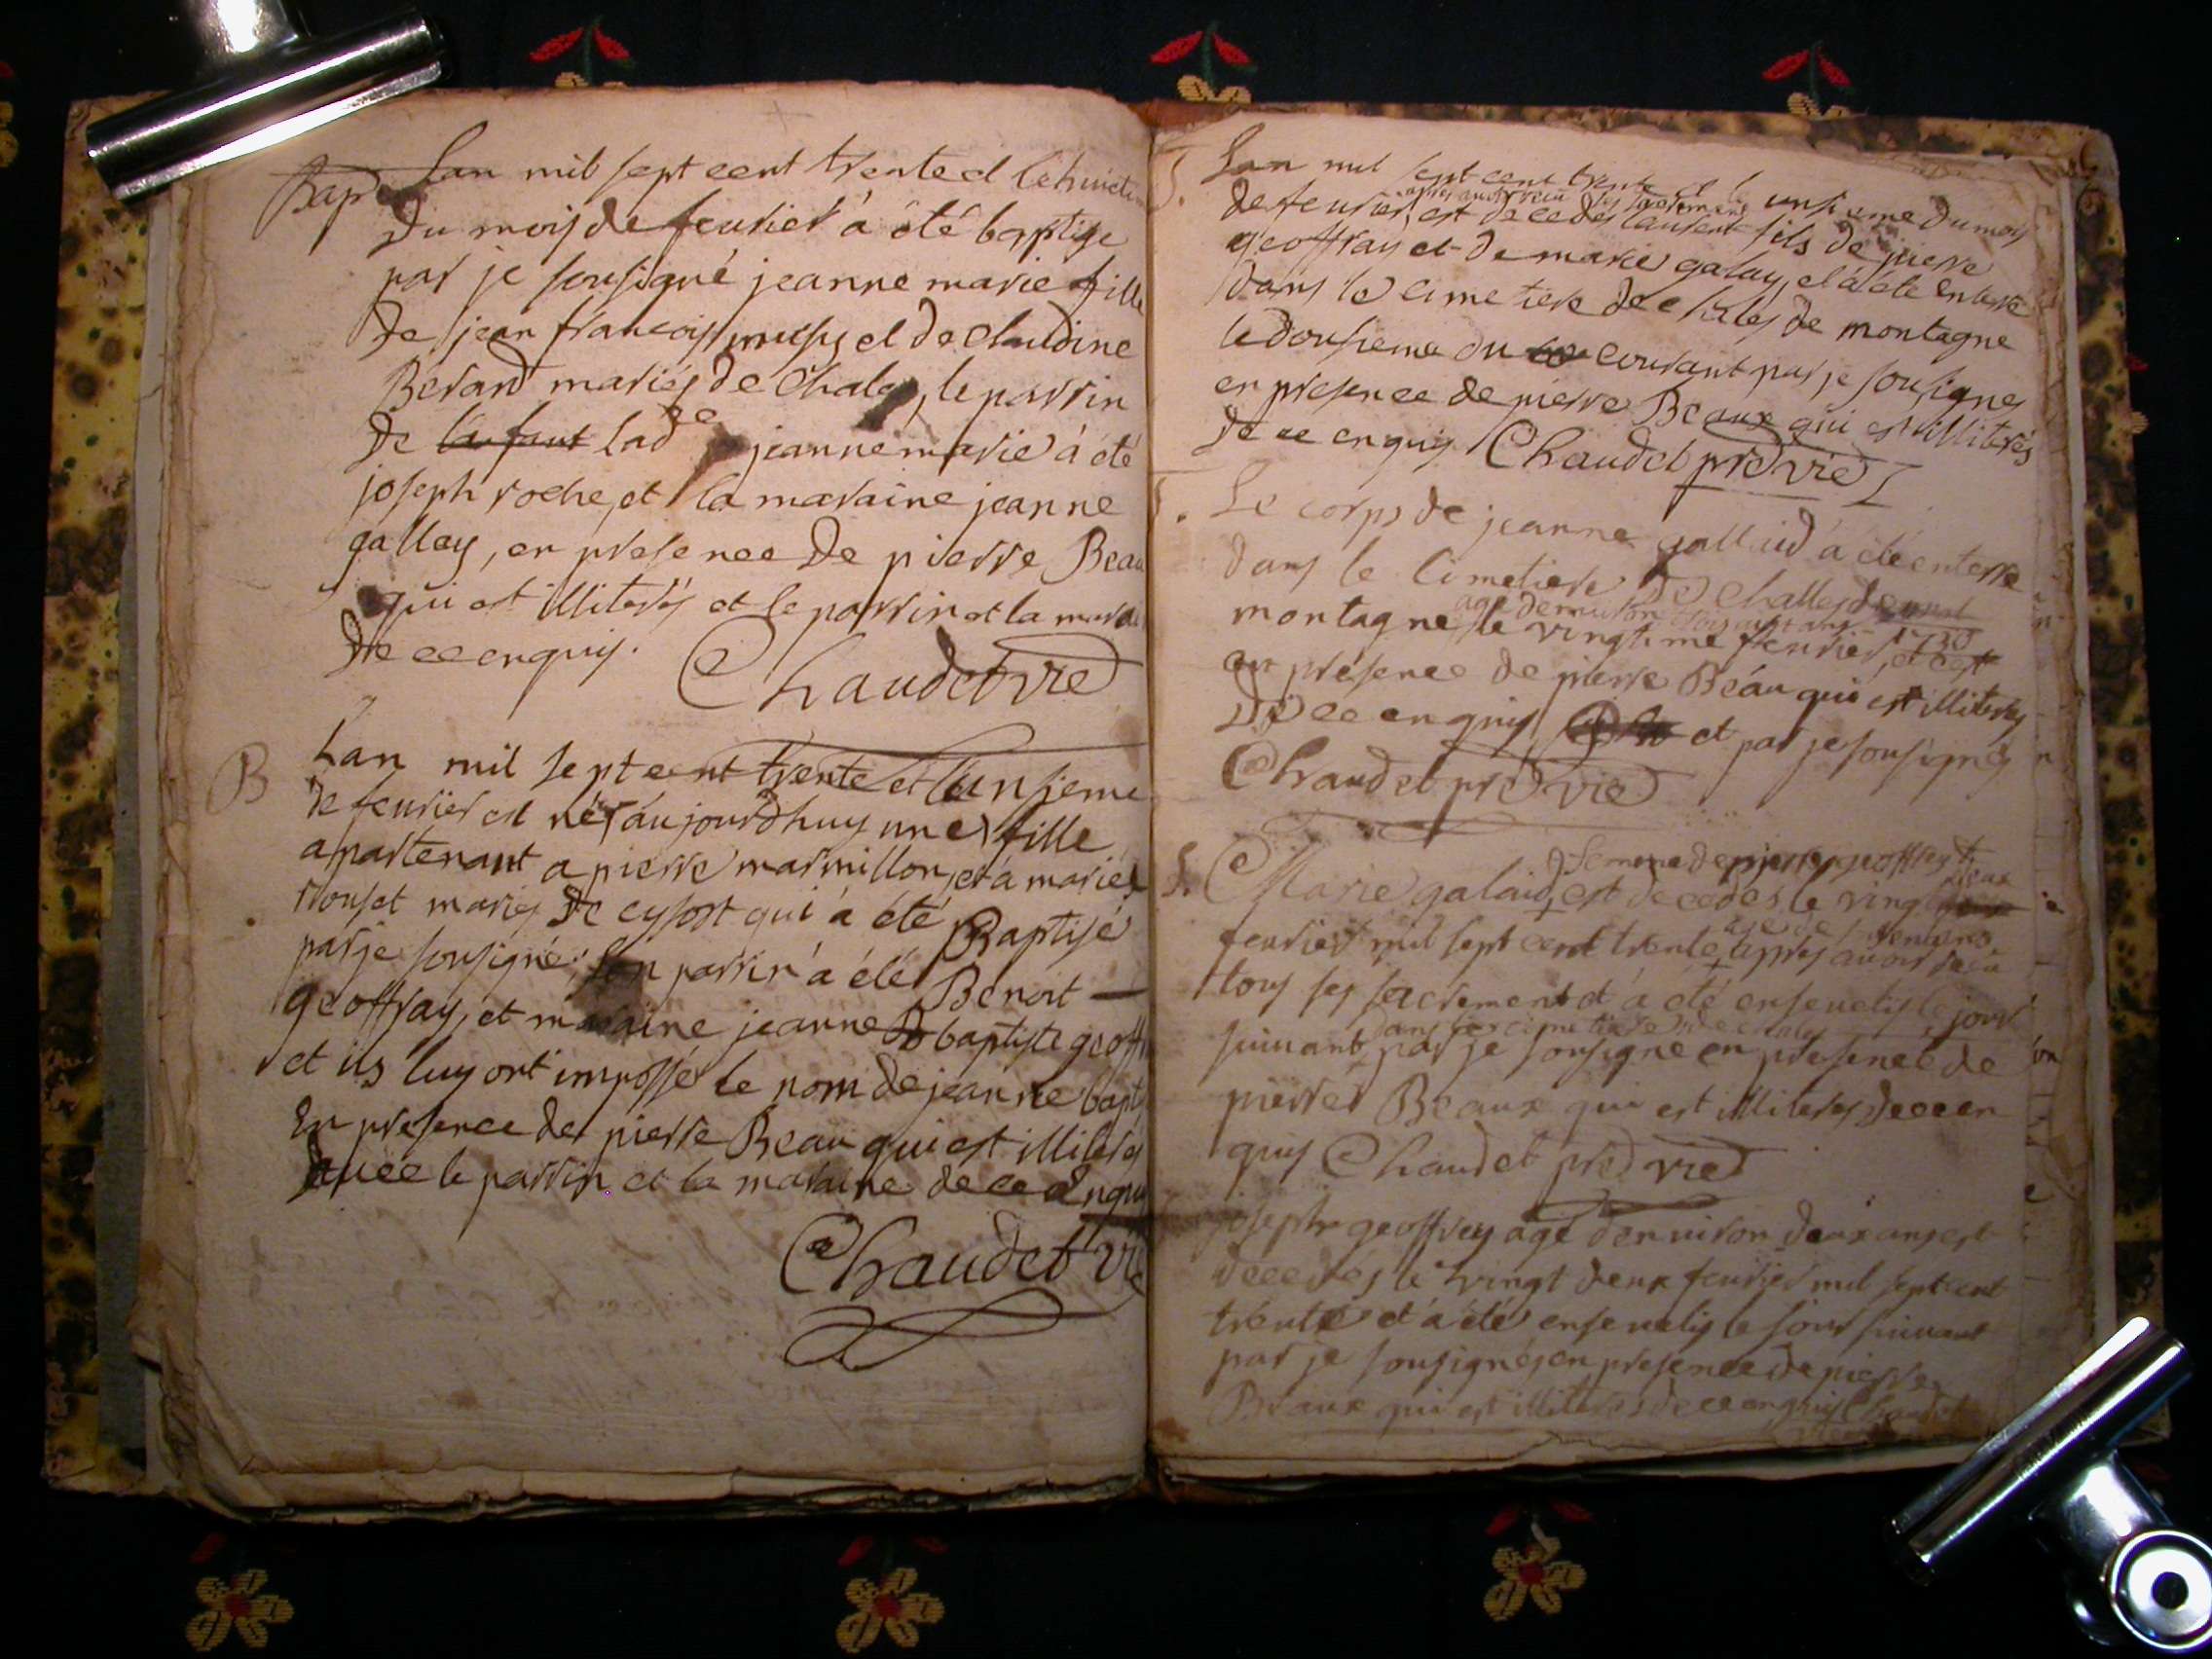 Bap
Lan mil sept cent trente et le huictie
du mois de feurier à été baptisé
par je sousigné jeanne marie fille
de jean francois et de claudine
Berard mariés de Chales, le parrin
de la fant lad.e jeanne marie à été
joseph roche, et la maraine jeanne
galley, en presence de pierre Beau
qui est illiterés et le parrin et la mara
de ce enquis.
Chaudet vre
B
Lan mil sept cent trente et l'unsieme
de feurier est née aujourdhuy une fille
apartenant a pierre marmillon, et à marie
rouset mariés de cysost qui à été Baptisé
par je sousigné. Son parrin à été Benoit
geoffray, et maraine jeanne baptiste geoff
et ils luy ont imposser le nom de jeanne bapt
En presence de pierre Beau qui est illiterés
auec le parrin et la maraine de ce enqui
Chaudet vre
S.
Lan mil sept cent trente et le unsieme du mois
apres auoir receu les sacrement
de feurier, est decedés laurent fils de pierre
geoffray et de marie galay, et à été enterré
dans le cimetiere de chales de montagne
le dousieme du courant par je sousignes
en presence de pierre Beaux qui est illiterés
de ce enquis Chaudet pre vre
Le corps de jeanne galland à été enterré
dans le Cimetiere de Challes de
age denuiron ans
montagne le vingtime feurier, 1730
en présence de pierre Beau qui est illiterés
de ce enquis et par je sousignés
Chaudet pre vre
S.
femme de pierre geoffrey
Marie galaid, est decedés le vingt deux
feurier mil sept cent trente, appres auoir receu
tous ses sacrement et à été enseuelis le jour
dans le cimetiere de chales
suiuant, par je sousigné en presence de
pierre Beaux qui est illiteres de ce en
quis Chaudet pre vre
joseph geoffrey agé denuiron deux ans est
decedés le vingt deux feurier mil sept cent
trente et à été enseuelis le jour suiuant
par je sousignés en presence de pierre
Beaux qui est illiteres de ce enquis Chaudet